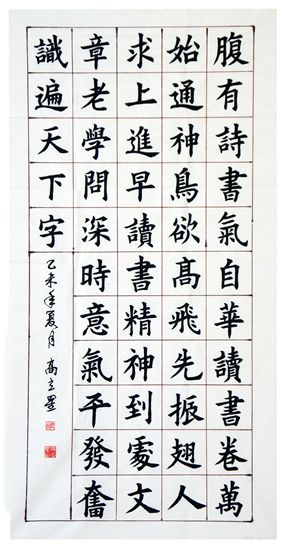 腹有詩書氣自華讀書卷萬
始通神鳥欲髙飛先振翅人
求上進早讀書精神到處文
章老學問深時意氣平發奮
識遍天下字
乙未年夏月 高立